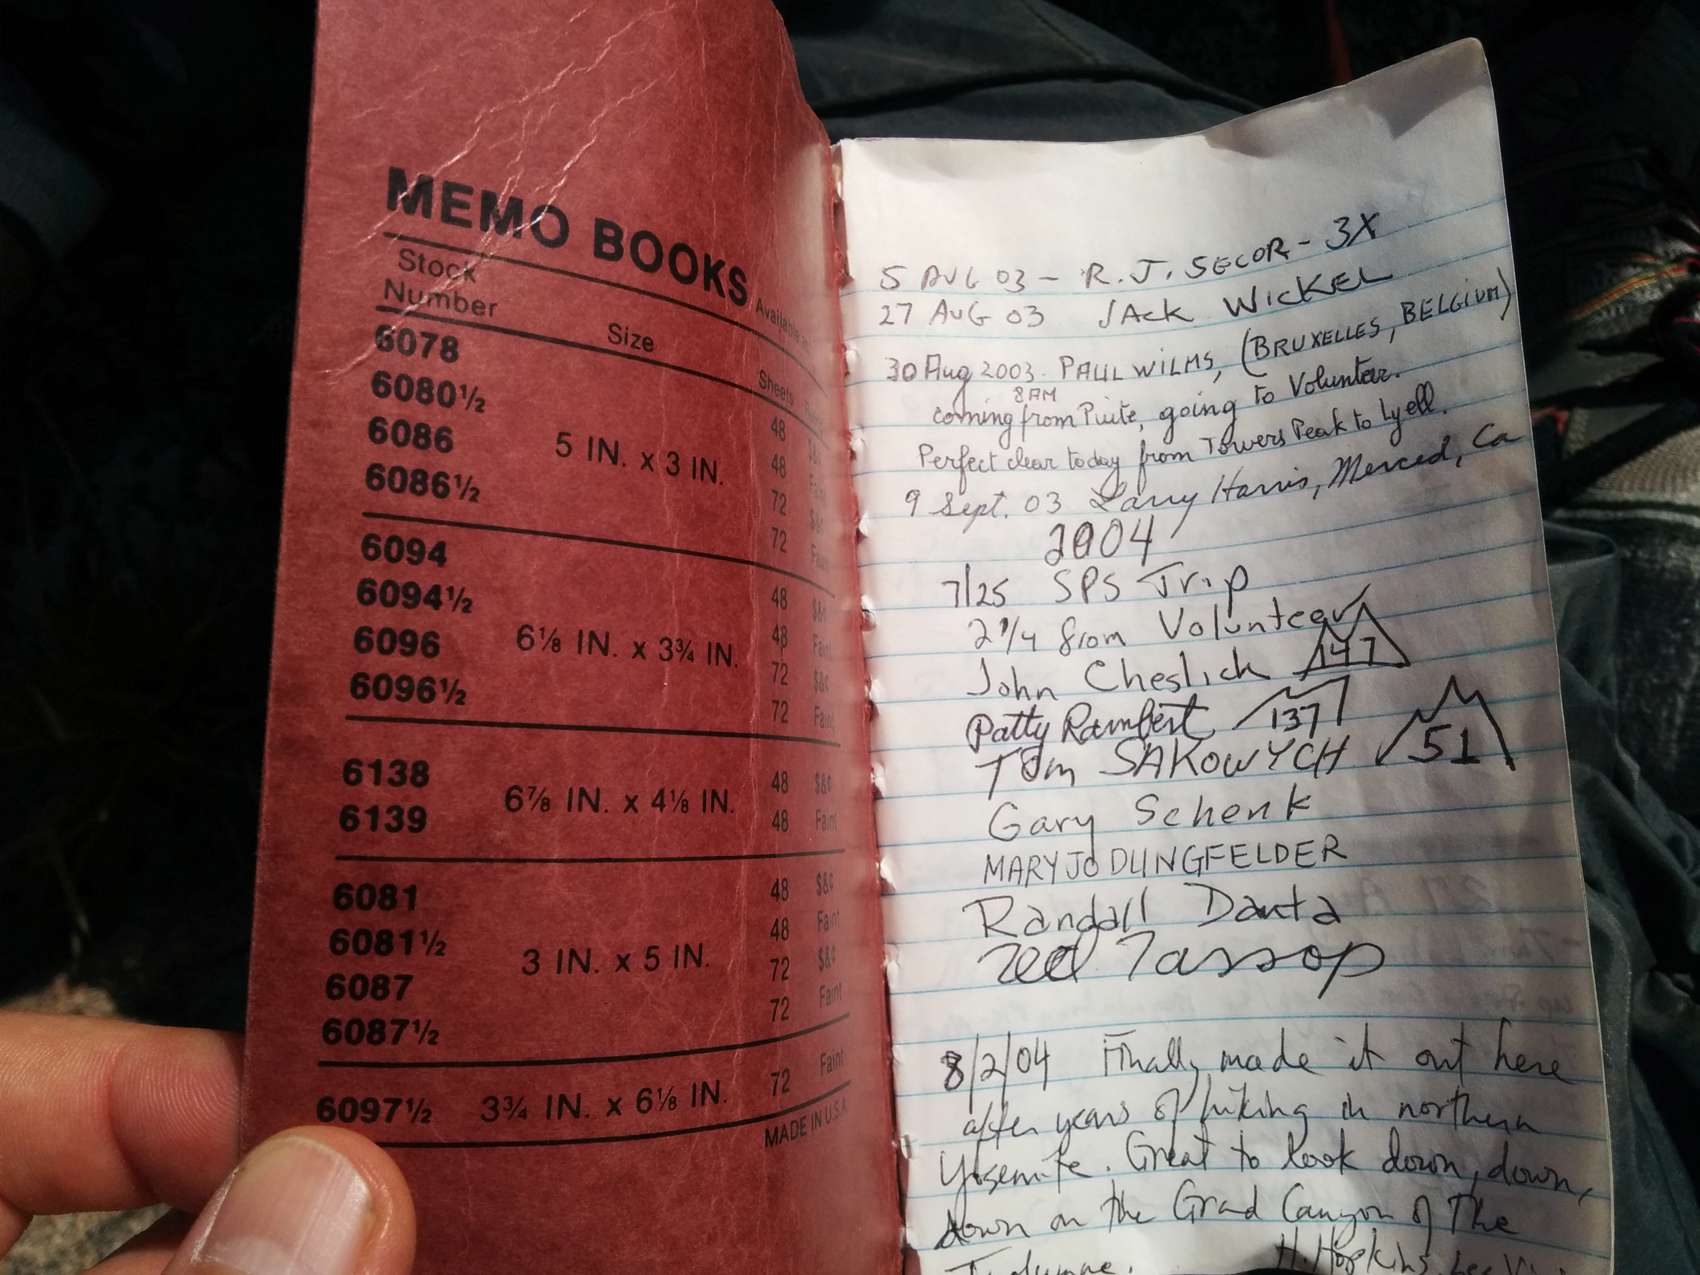 MEMO BOOKS
Stock
Number
Size
Sheets
6078
6080½
6086
6086½
5 IN. x 3 IN.
48
48
72
72
6094
6094½
6096
6096½
6⅛ IN. x 3¾ IN.
48 $&¢
48 Faint
72 $&¢
72 Faint
6138
6139
6⅞ IN. x 4⅛ IN.
48 $&¢
48 Faint
6081
6081½
6087
6087½
3 IN. x 5 IN.
48 $&¢
48 Faint
72 $&¢
72 Faint
6097½ 3¾ IN. x 6⅛ IN. 72 Faint
MADE IN U.S.A.
5 AUG 03 - R. J. SECOR - 3X
27 AUG 03 JACK WICKEL
30 Aug 2003. PAUL WILMS, (BRUXELLES, BELGIUM)
8 AM
coming from Piute, going to Volunteer.
Perfect clear today from Towers Peak to Lyell.
9 Sept. 03 Larry Harris, Merced, Ca
2004
7/25 SPS Trip
2 1/4 from Volunteer
John Cheslick 147
Patty Rambert 137
Tom SAKOWYCH 51
Gary Schenk
MARY JO DUNGFELDER
Randall Danta
8/2/04 Finally made it out here
after years of hiking in northern
Yosemite. Great to look down, down,
down on the Grand Canyon of The
Tuolumne. H. Hopkins,